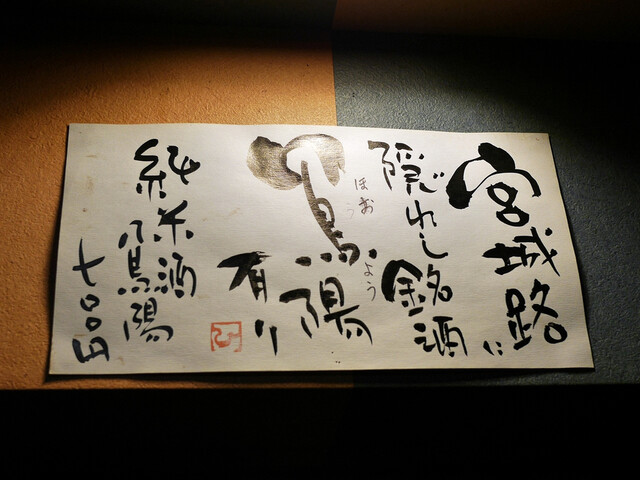 宮城路に
隠れし銘酒
鳳陽
ほおう
よう
有り
純米酒鳳陽